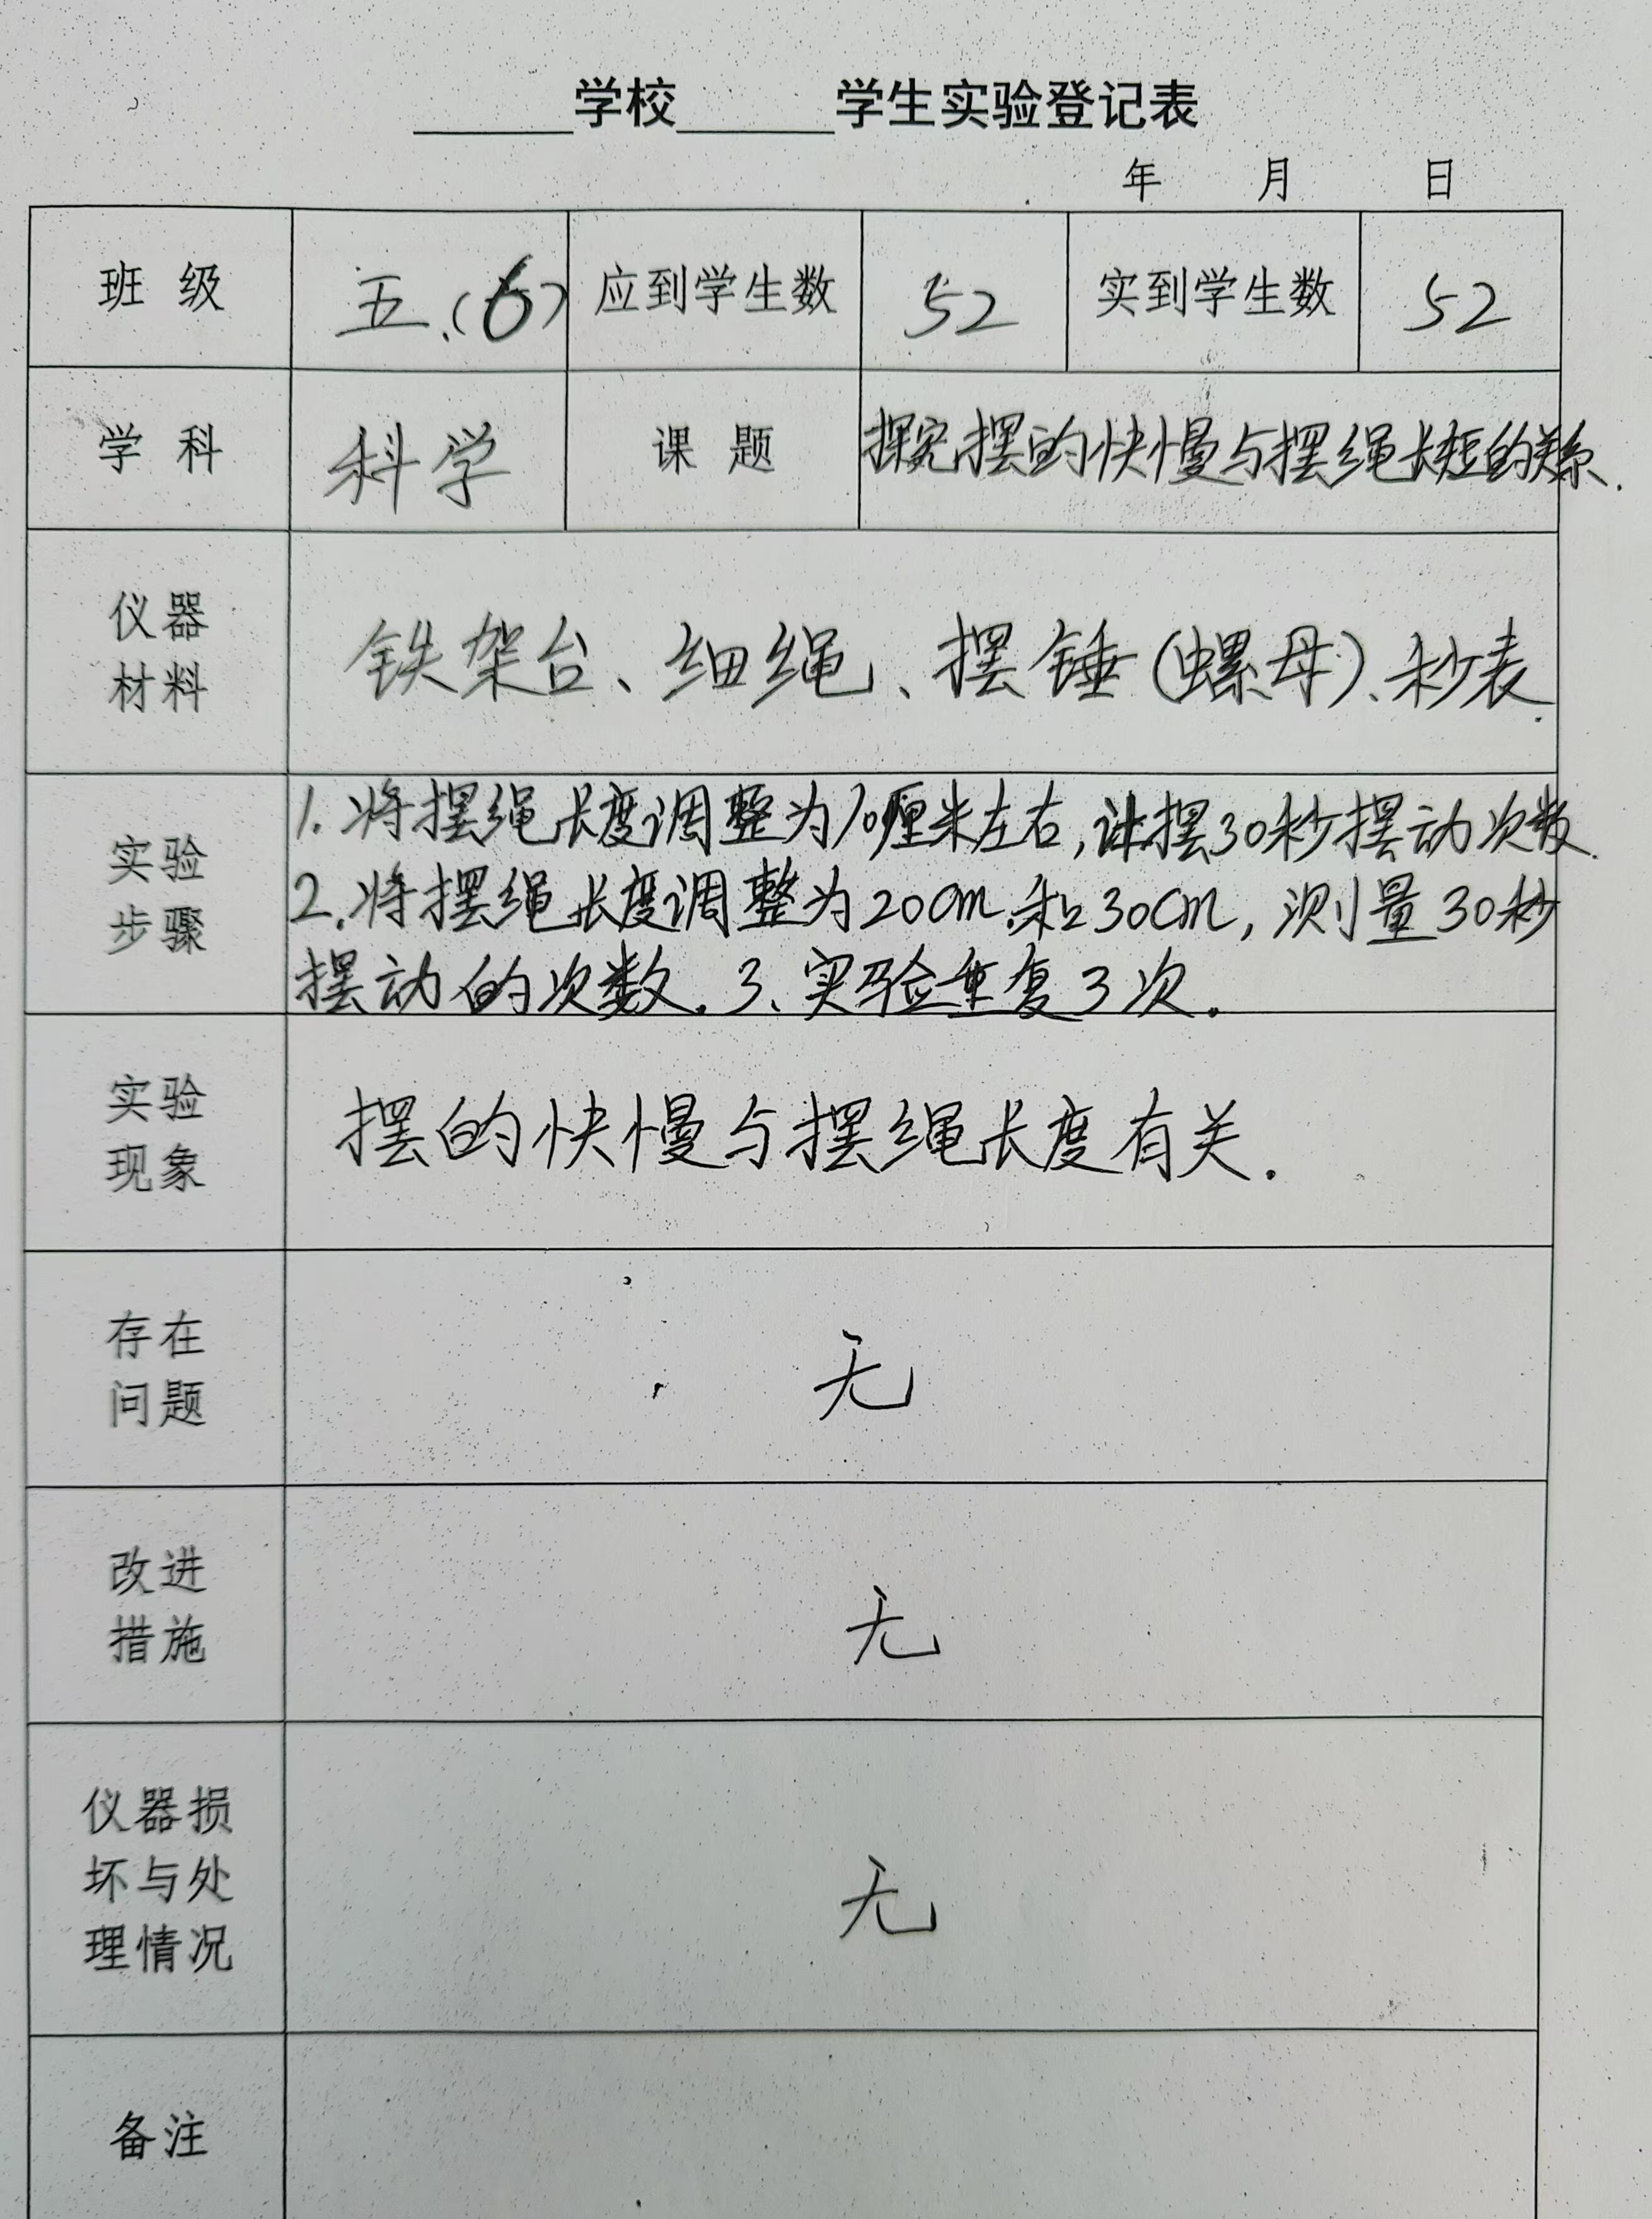 ______学校______学生实验登记表
年 月 日
班 级 五.(6) 应到学生数 52 实到学生数 52
学 科 科学 课 题 探究摆的快慢与摆绳长短的关系.
仪器
材料
铁架台、细绳、摆锤(螺母)、秒表.
实验
步骤
1.将摆绳长度调整为10厘米左右,计摆30秒摆动次数.
2.将摆绳长度调整为20cm.和30cm,测量30秒
摆动的次数.3、实验重复3次.
实验
现象
摆的快慢与摆绳长度有关.
存在
问题
无
改进
措施
无
仪器损
坏与处
理情况
无
备注